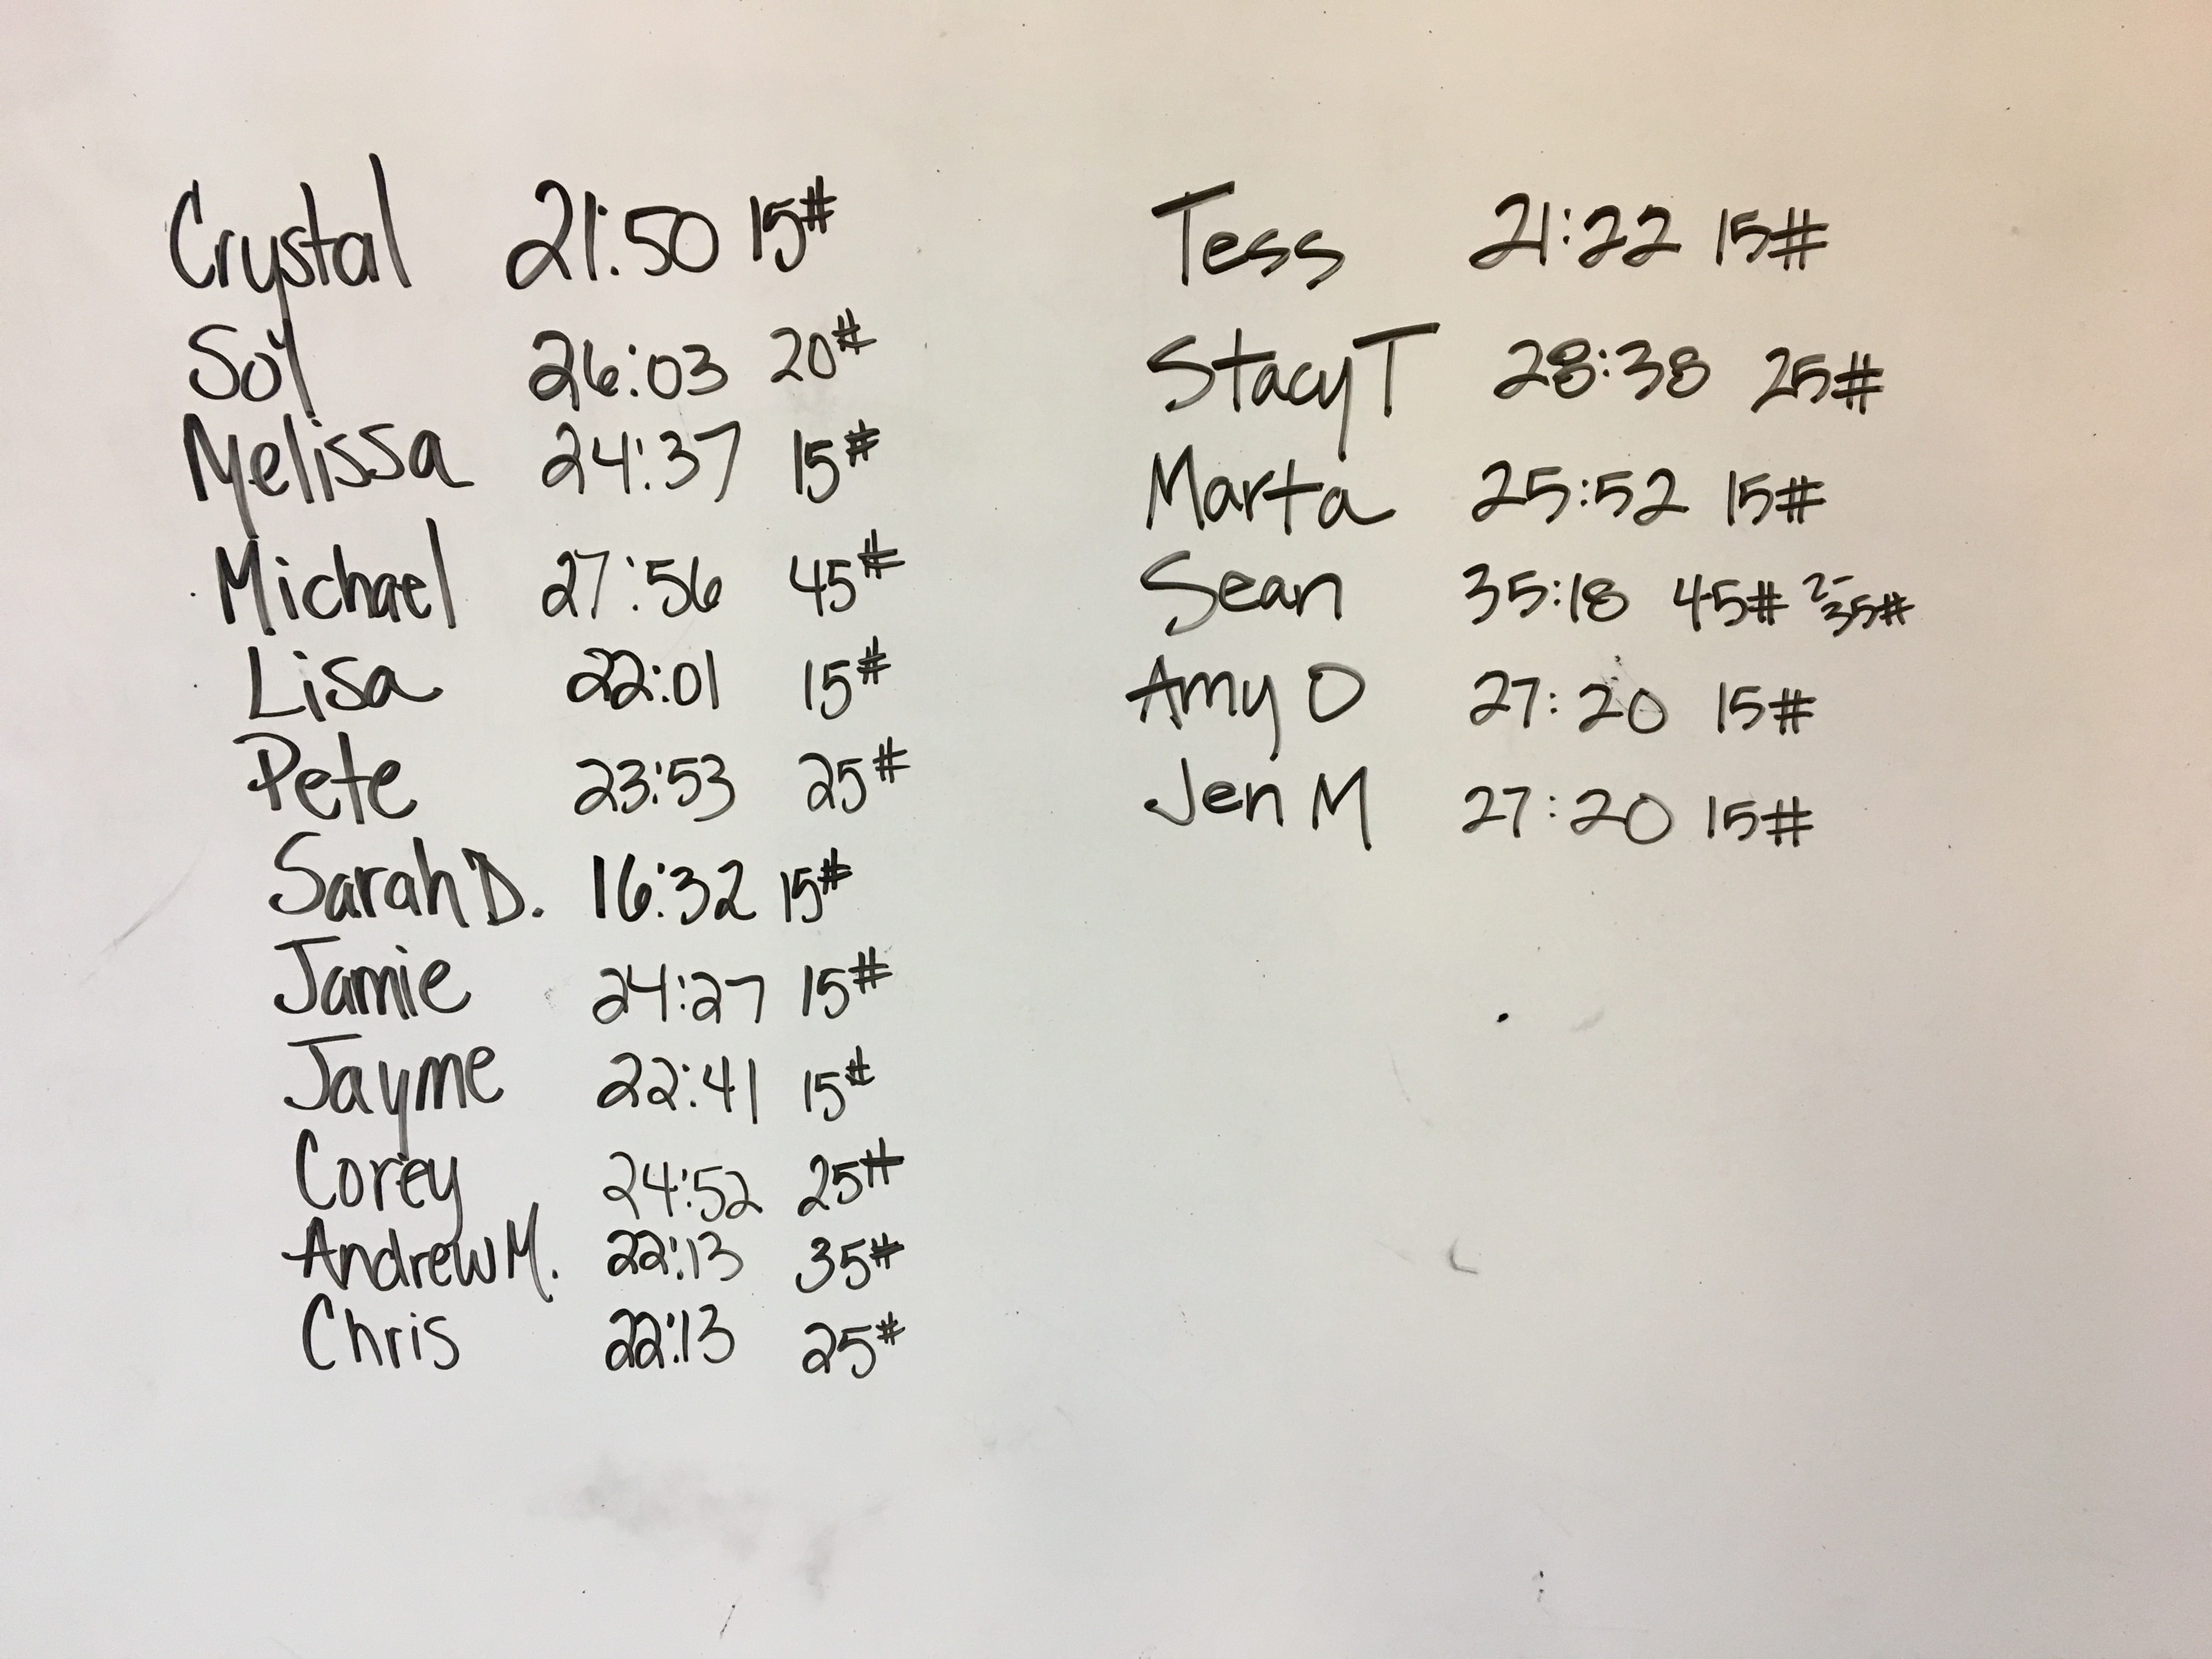 Crystal 21:50 15#
Soy 26:03 20#
Melissa 24:37 15#
Michael 27:56 45#
Lisa 22:01 15#
Pete 23:53 25#
Sarah D. 16:32 15#
Jamie 24:27 15#
Jayme 22:41 15#
Corey 24:52 25#
Andrew M. 22:13 35#
Chris 22:13 25#
Tess 21:22 15#
Stacy T 28:38 25#
Marta 25:52 15#
Sean 35:18 45# 2-35#
Amy O 27:20 15#
Jen M 27:20 15#